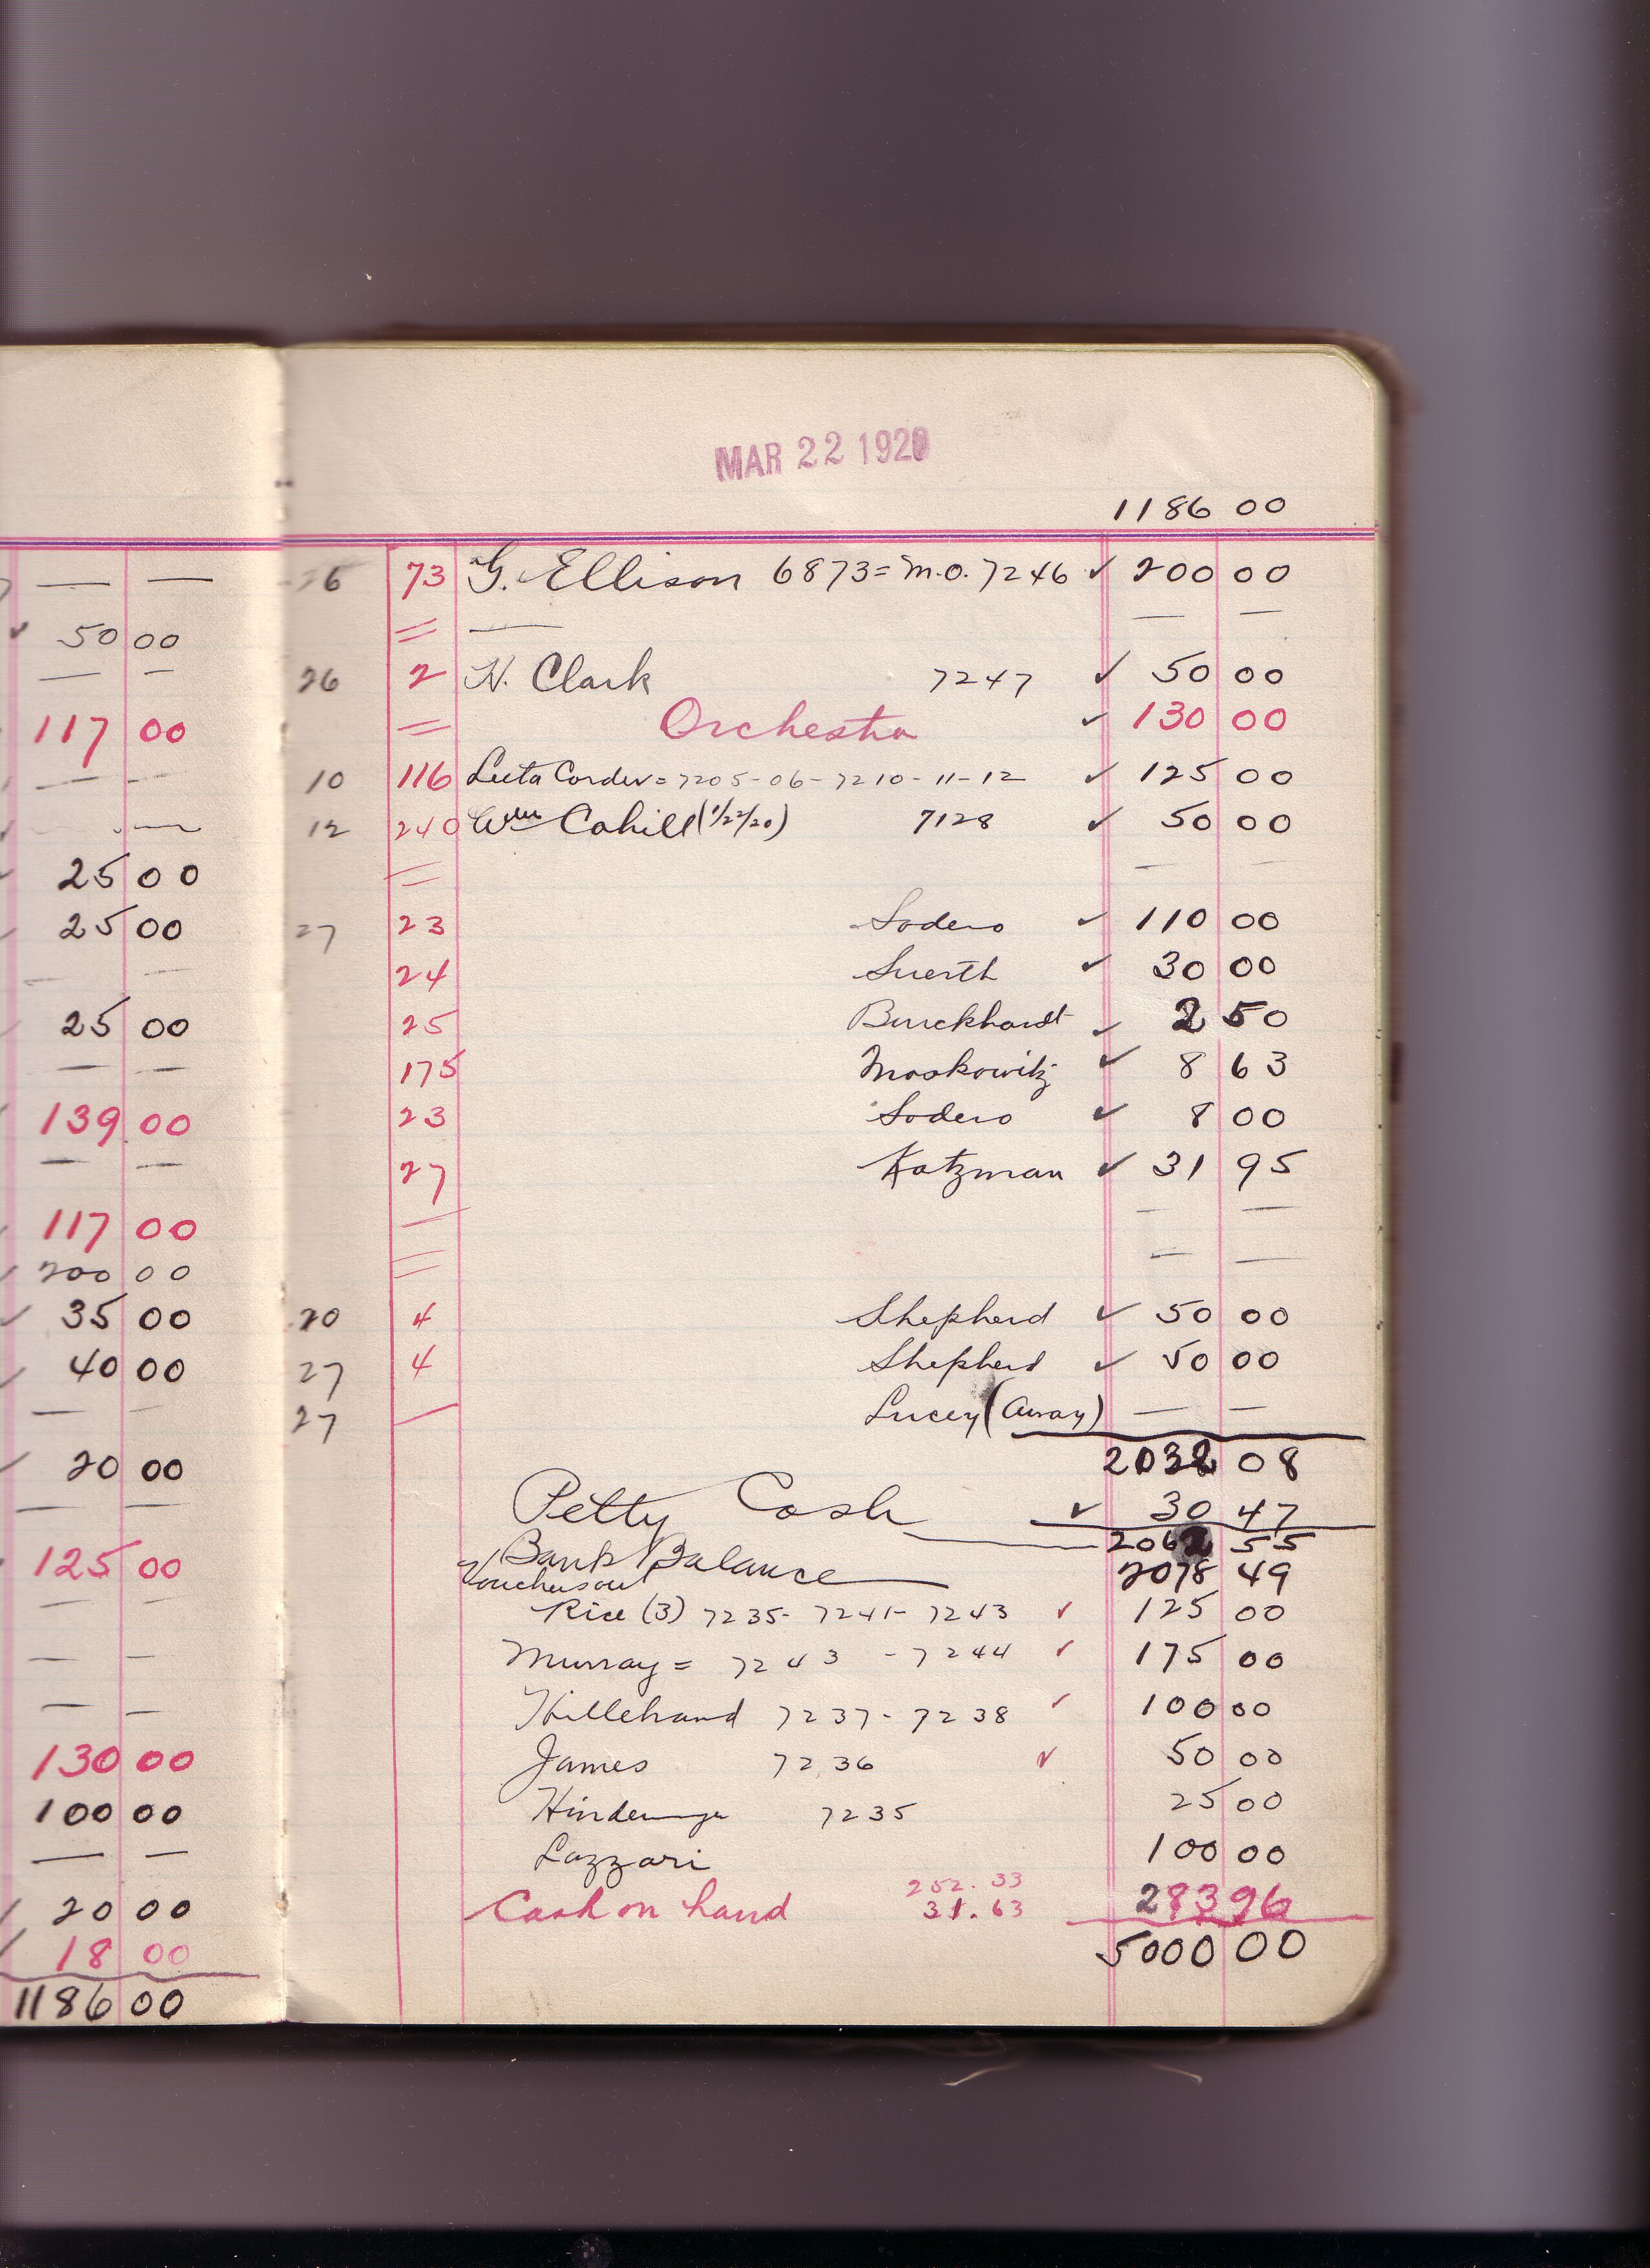 50 00
117 00
25 00
25 00
25 00
139 00
117 00
200 00
35 00
40 00
20 00
125 00
130 00
100 00
20 00
18 00
1186 00
MAR 22 1920
1186 00
26 73 G. Ellison 6873 = M.O. 7246 ✓ 200 00
26 2 N. Clark 7247 ✓ 50 00
Orchestra ✓ 130 00
10 116 Leeta Corder = 7205-06-7210-11-12 ✓ 125 00
12 240 Wm Cahill (1/22/20) 7128 ✓ 50 00
27 23 Sodero ✓ 110 00
24 Suerth ✓ 30 00
25 Burckhardt ✓ 2 50
175 Moskowitz ✓ 8 63
23 Sodero ✓ 8 00
27 Katzman ✓ 31 95
20 4 Shepherd ✓ 50 00
27 4 Shepherd ✓ 50 00
27 Lucey (Away) — —
2032 08
Petty Cash ✓ 30 47
2062 55
Bank Balance 2078 49
Vouchers out
Rice (3) 7235- 7241- 7243 ✓ 125 00
Murray = 7243 - 7244 ✓ 175 00
Hillebrand 7237- 7238 ✓ 100 00
James 7236 ✓ 50 00
7235 25 00
Lazzari 100 00
252.33
Cash on hand 31.63 283 96
5000 00